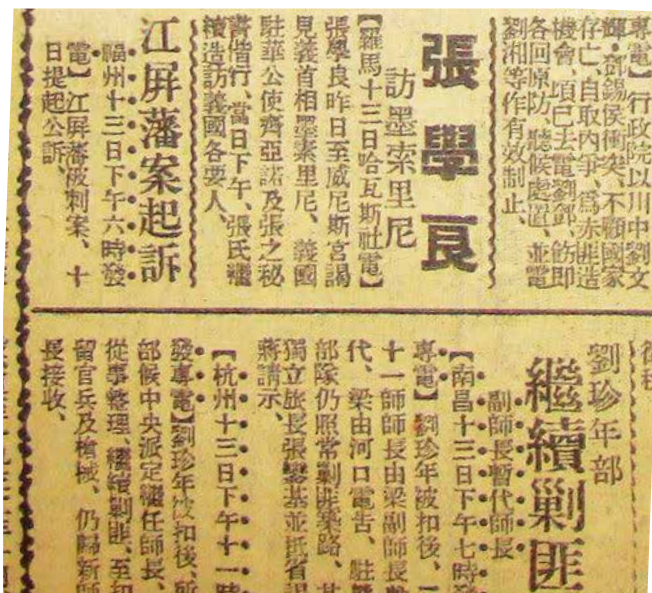 專電】行政院以川中劉文
輝、鄧錫侯衝突、不顧國家
存亡、自取內爭、爲赤匪造
機會、頃已去電劉鄧、飭即
各回原防、聽候處置、並電
劉湘等作有效制止、
張學良
訪墨索里尼
【羅馬十三日哈瓦斯社電】
張學良昨日至威尼斯宮謁
見義首相墨索里尼、義國
駐華公使齊亞諾及張之秘
書偕行、當日下午、張氏繼
續造訪義國各要人、
江屏藩案起訴
福州十三日下午六時發
電】江屏藩被刺案、十
日提起公訴、
劉珍年部
繼續剿匪
副師長暫代師長
【南昌十三日下午七時發
專電】劉珍年被扣後、二
十一師師長由梁副師長
代、梁由河口電告、駐
部隊仍照常剿匪築路、
獨立旅長張鑾基並抵省謁
蔣請示、
【杭州十三日下午十一時
發專電】劉珍年被扣後、所
部候中央派定繼任師長、
從事整理、繼續剿匪、至
留官兵及槍械、仍歸新師
長接收、